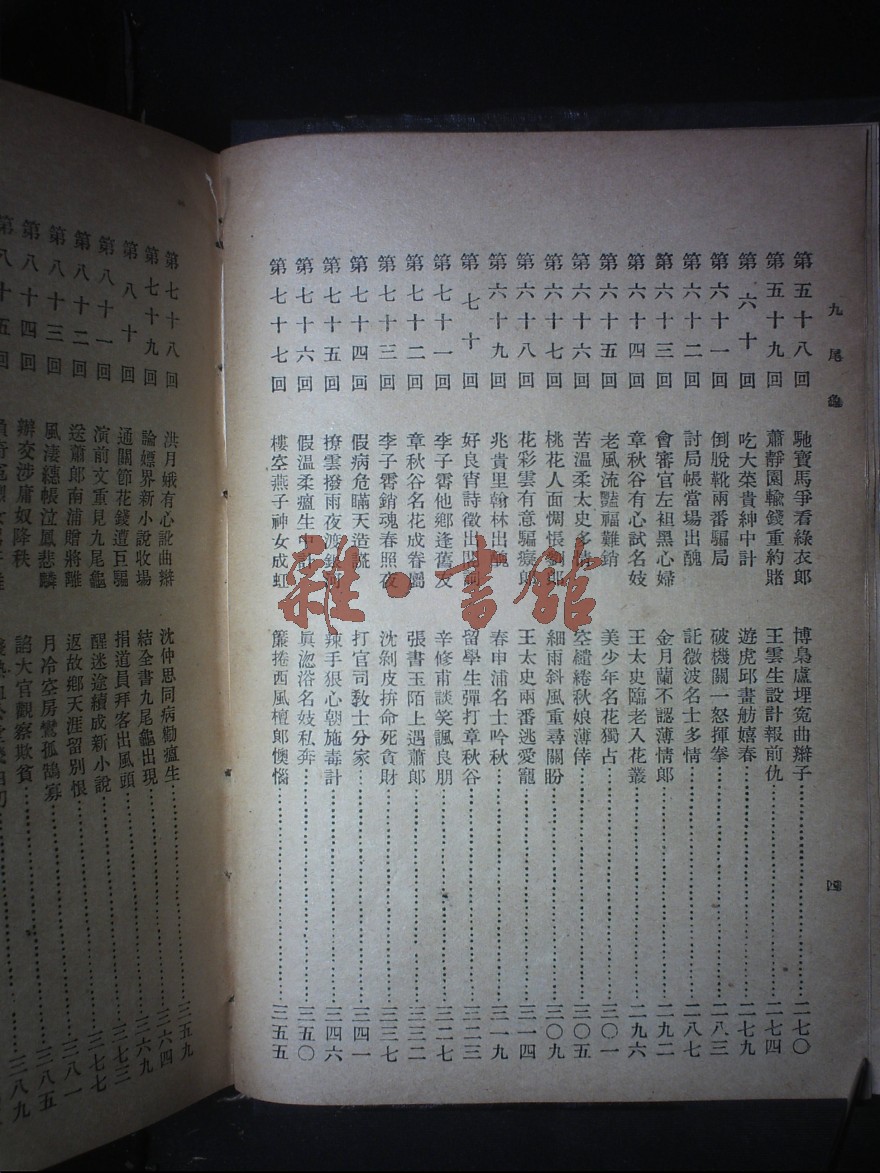 九尾龜
第五十八回 馳寶馬爭看綠衣郎 博梟盧埋冤曲辮子 二七〇
第五十九回 蕭靜園輸錢重約賭 王雲生設計報前仇 二七四
第六十回 吃大菜貴紳中計 遊虎邱畫舫嬉春 二七九
第六十一回 倒脫靴兩番騙局 破機關一怒揮拳 二八三
第六十二回 討局帳當場出醜 託微波名士多情 二八七
第六十三回 會審官左袒黑心婦 金月蘭不認薄情郎 二九二
第六十四回 章秋谷有心試名妓 王太史臨老入花叢 二九六
第六十五回 老風流豔福難銷 美少年名花獨占 三〇一
第六十六回 苦溫柔太史多情 空繾綣秋娘薄倖 三〇五
第六十七回 桃花人面惆悵劉郎 細雨斜風重尋關盼 三〇九
第六十八回 花彩雲有意騙癡郎 王太史兩番逃愛寵 三一四
第六十九回 兆貴里翰林出醜 春申浦名士吟秋 三一九
第七十回 好良宵詩徵出閣詞 留學生彈打章秋谷 三二三
第七十一回 李子霄他鄉逢舊友 辛修甫談笑諷良朋 三二七
第七十二回 章秋谷名花成眷屬 張書玉陌上遇蕭郎 三三二
第七十三回 李子霄銷魂春照夜 沈剝皮拚命死貪財 三三七
第七十四回 假病危瞞天造謊 打官司敎士分家 三四一
第七十五回 撩雲撥雨夜渡銀河 辣手狠心朝施毒計 三四六
第七十六回 假溫柔瘟生中計 眞淴浴名妓私奔 三五〇
第七十七回 樓空燕子神女成虹 簾捲西風檀郎懊惱 三五五
四
第七十八回 洪月娥有心訛曲辮 沈仲思同病勸瘟生 三五九
第七十九回 論嫖界新小說收場 結全書九尾龜出現 三六四
第八十回 通關節花錢遭巨騙 捐道員拜客出風頭 三六九
第八十一回 演前文重見九尾龜 醒迷途續成新小說 三七三
第八十二回 送蕭郎南浦贈將離 返故鄉天涯留別恨 三七七
第八十三回 風淒繐帳泣鳳悲麟 月冷空房鸞孤鵠寡 三八一
第八十四回 辦交涉庸奴降秩 諂大官觀察欺貧 三八五
第八十五回 三八九
雜·書館